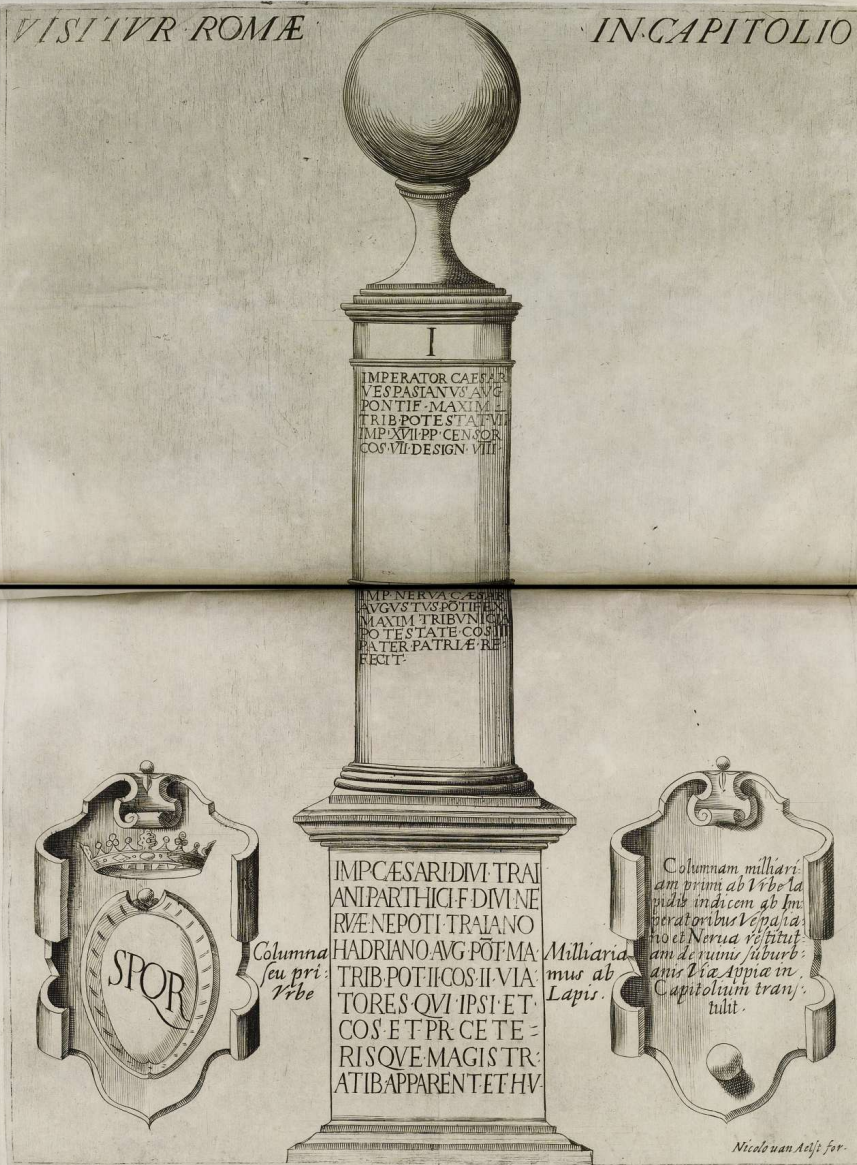 VISITVR ROMÆ IN·CAPITOLIO
I
IMPERATOR CAESAR
VESPASIANVS AVG
PONTIF·MAXIM
TRIB·POTESTAT·VII
IMP·XVII·PP·CENSOR
COS·VII·DESIGN·VIII
IMP·NERVA CÆSAR
AVGVSTVS PŌTIFEX
MAXIM TRIBVNICIA
POTESTATE·COS III
PATER·PATRIÆ·RE-
FECIT·
IMP·CÆSARI·DIVI·TRAI
ANI·PARTHICI·F·DIVI·NE
RVÆ NEPOTI·TRAIANO
HADRIANO·AVG·PŌT·MA
TRIB·POT·II·COS·II·VIA
TORES·QVI·IPSI·ET·
COS·ET·PR·CETE=
RISQVE·MAGISTR:
ATIB·APPARENT·ET·HV·
SPQR
Columna Milliaria
seu pri: mus ab
Vrbe Lapis.
Columnam milliari:
am primi ab Vrbe la
pidis indicem ab Im:
peratoribus Vespasia:
no et Nerua restitut:
am de ruinis suburb:
anis Viæ Appiæ in
Capitolium trans:
tulit.
Nicolo van Aelst for.